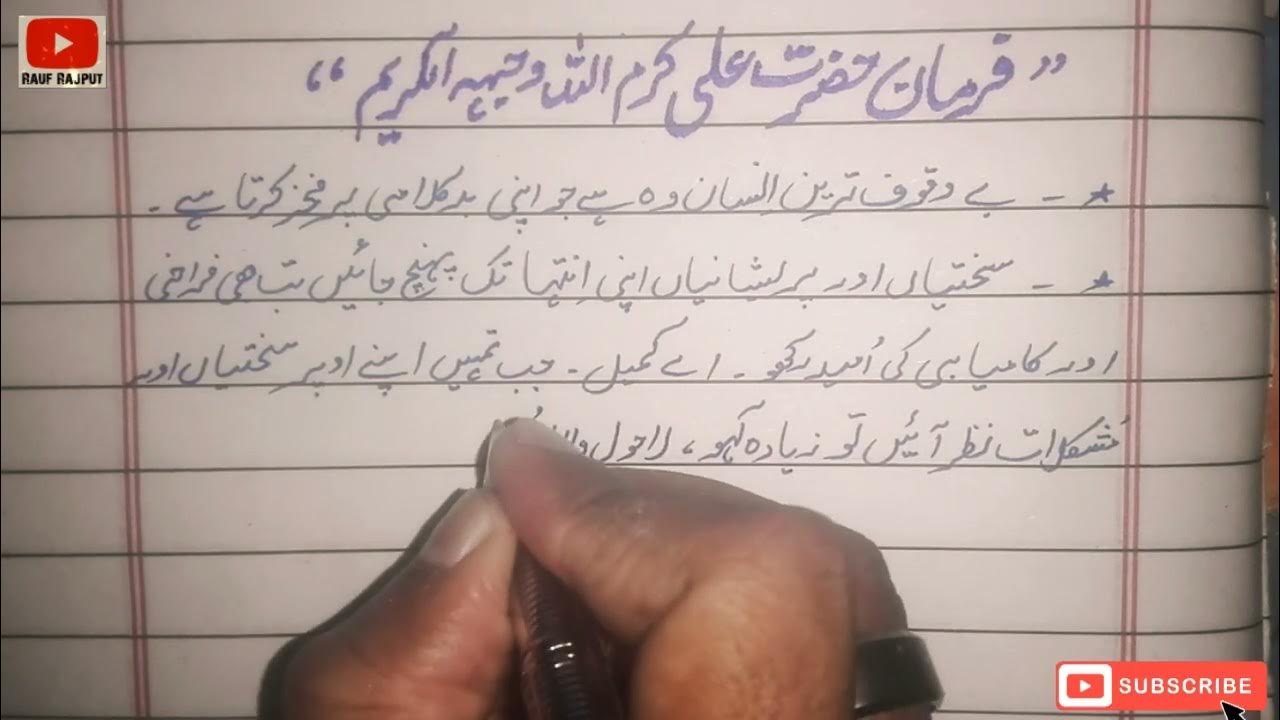 RAUF RAJPUT
” فرمان حضرت علی کرم اللہ وجہہ الکریم “
★ - بے وقوف ترین اِنسان وہ ہے جو اپنی بدکلامی پر فخر کرتا ہے -
★ - سختیاں اور پریشانیاں اپنی اِنتہا تک پہنچ جائیں تب ہی فراخی
اور کامیابی کی اُمید رکھو - اے کمیل - جب تمہیں اپنے اوپر سختیاں اور
مُشکلات نظر آئیں تو زیادہ کہو ، لاحول
SUBSCRIBE